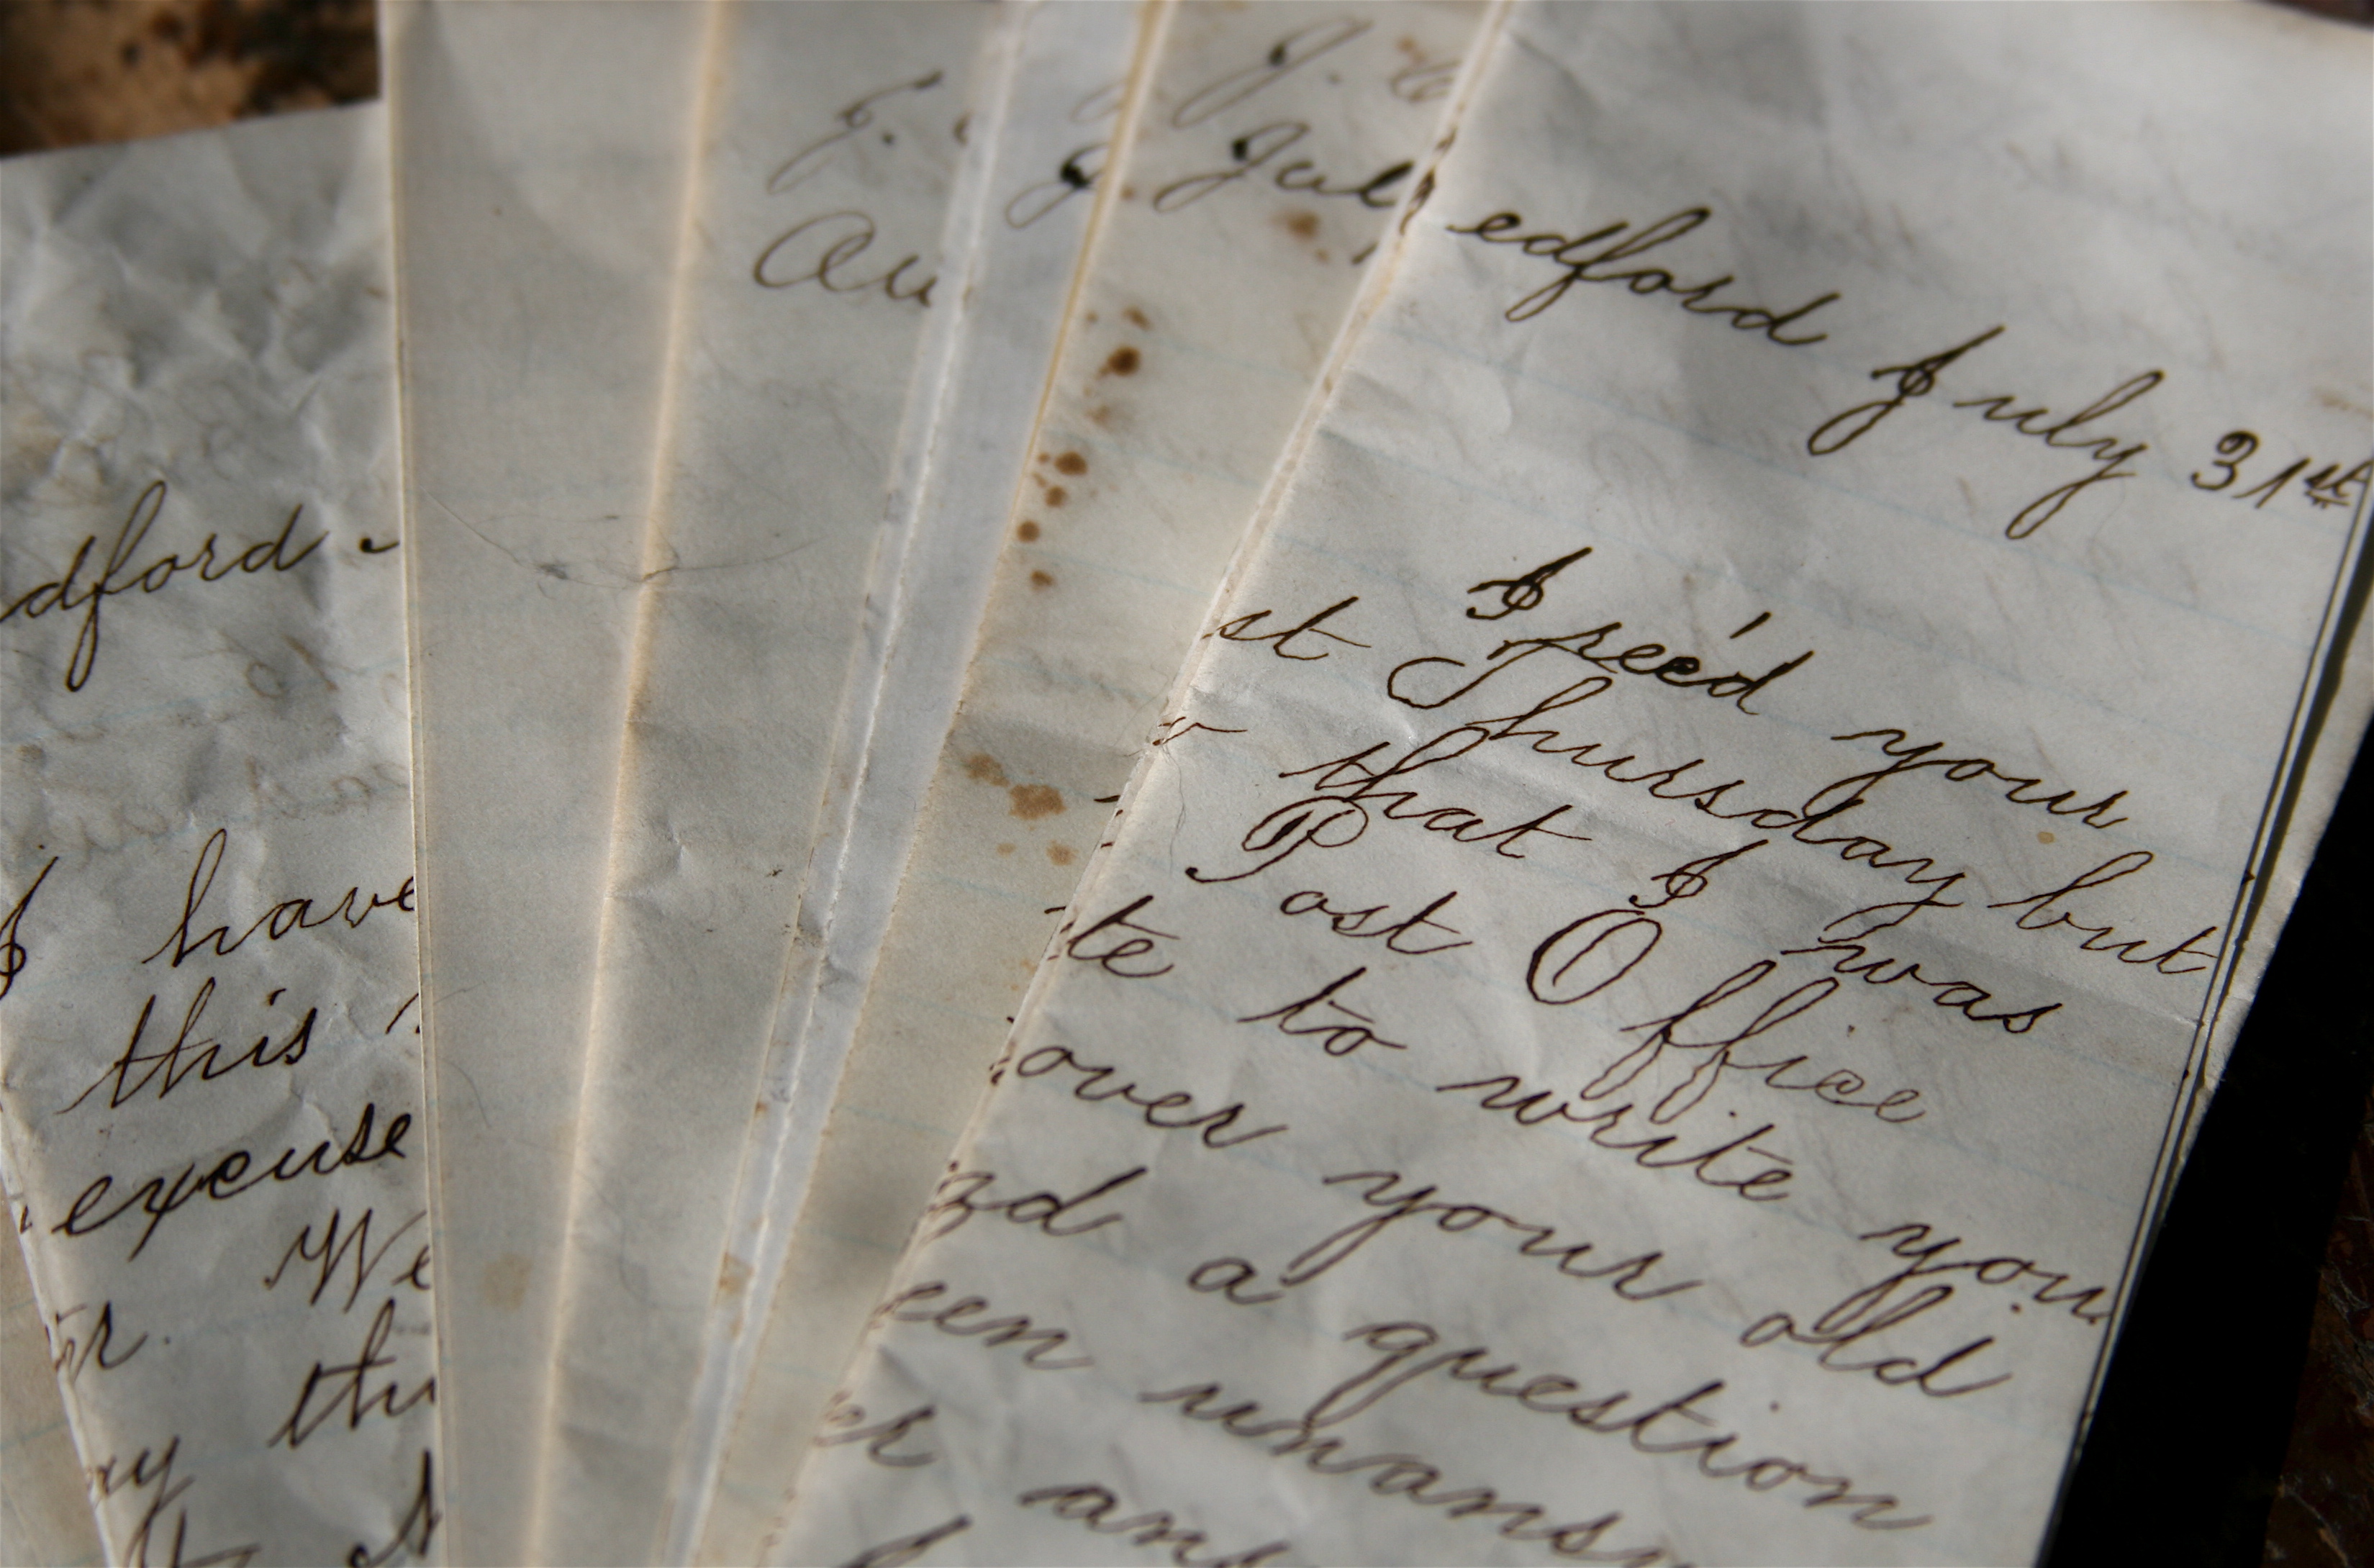 dford
I have
this
excuse
We
r.
thi
ay
J.
Au
J.
J.
Jul
edford July 31st
I rec'd your
st Thursday but
that I was
Post Office
te to write you
over your old
nd a question
een unans
er ans